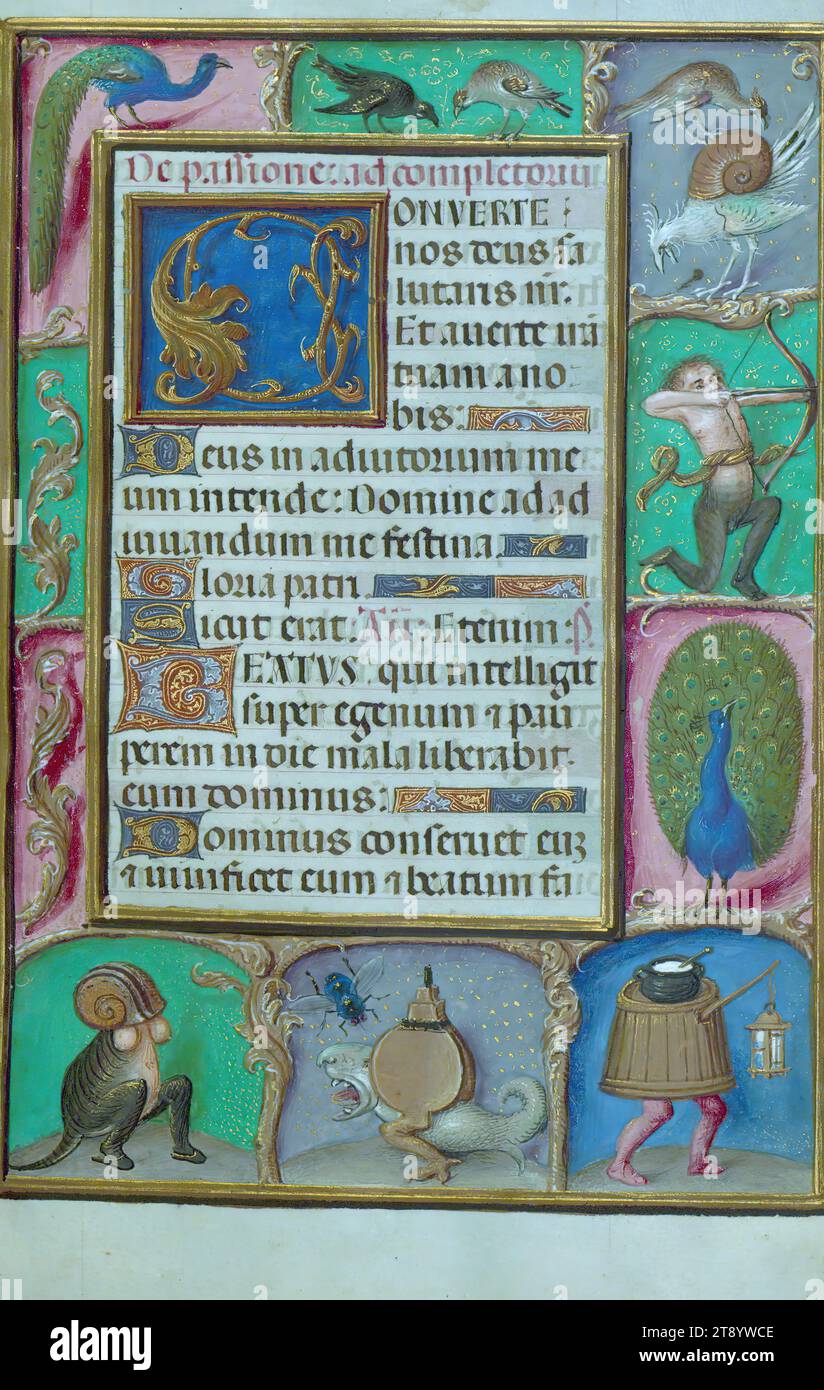 De passione: ad completoriu
CONVERTE
nos deus sa
lutaris nr.
Et auerte iram
tuam a no
bis:
Deus in adiutorium me
um intende: Domine ad ad
iuuandum me festina
Gloria patri
Sicut erat: An: Etenim: P
BEATVS qui intelligit
super egenum & pau
perem in die mala liberabit
eum dominus:
Dominus conseruet eu
& uiuificet eum & beatum fa
alamy
Image ID: 2T8YWCE
www.alamy.com